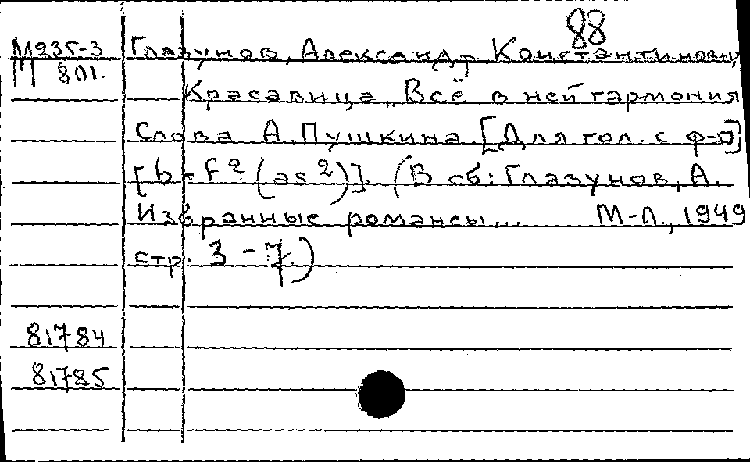 88
М235-3 Глазунов, Александр Константинович
П 801. Красавица „Всё в ней гармония
Слова А. Пушкина. [Для гол. с ф-п]
[b-f² (as²)]. (В сб: Глазунов, А.
Избранные романсы... М-Л., 1949
стр. 3-7.)
81784
81785